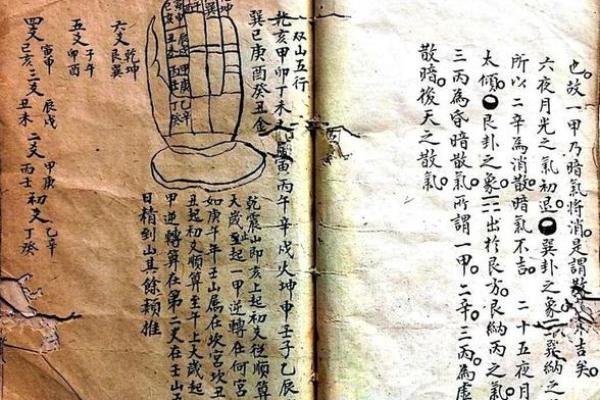 也。故一甲乃暗氣將消。是謂散未吉矣。
六夜月光之氣初退。巽卦之象☴巽納之
所以二辛為消散暗氣不吉。二十五夜月
太傾。艮卦之象☶出於艮方。艮納丙之氣
三丙為昏暗散氣。所謂一甲。二辛。三丙為虛
散暗後天之散氣。
双山五行
乾亥甲卯丁未木艮寅丙午辛戌火坤申壬子乙辰
巽巳庚酉癸丑金
乾震山即亥上起初爻從順算
天歲起一甲逆轉在何宮
如庚午年壬山屬在坎宮坎丑
丑起初爻順算至午上天歲起
甲逆轉算在第二爻在壬山五
日積到山其餘類推
六爻 乾坤 艮巽
五爻 子午 甲酉
四爻 寅申 巳亥 三爻 辰戌 丑未 二爻 甲庚 丙壬 初爻 乙辛 丁癸